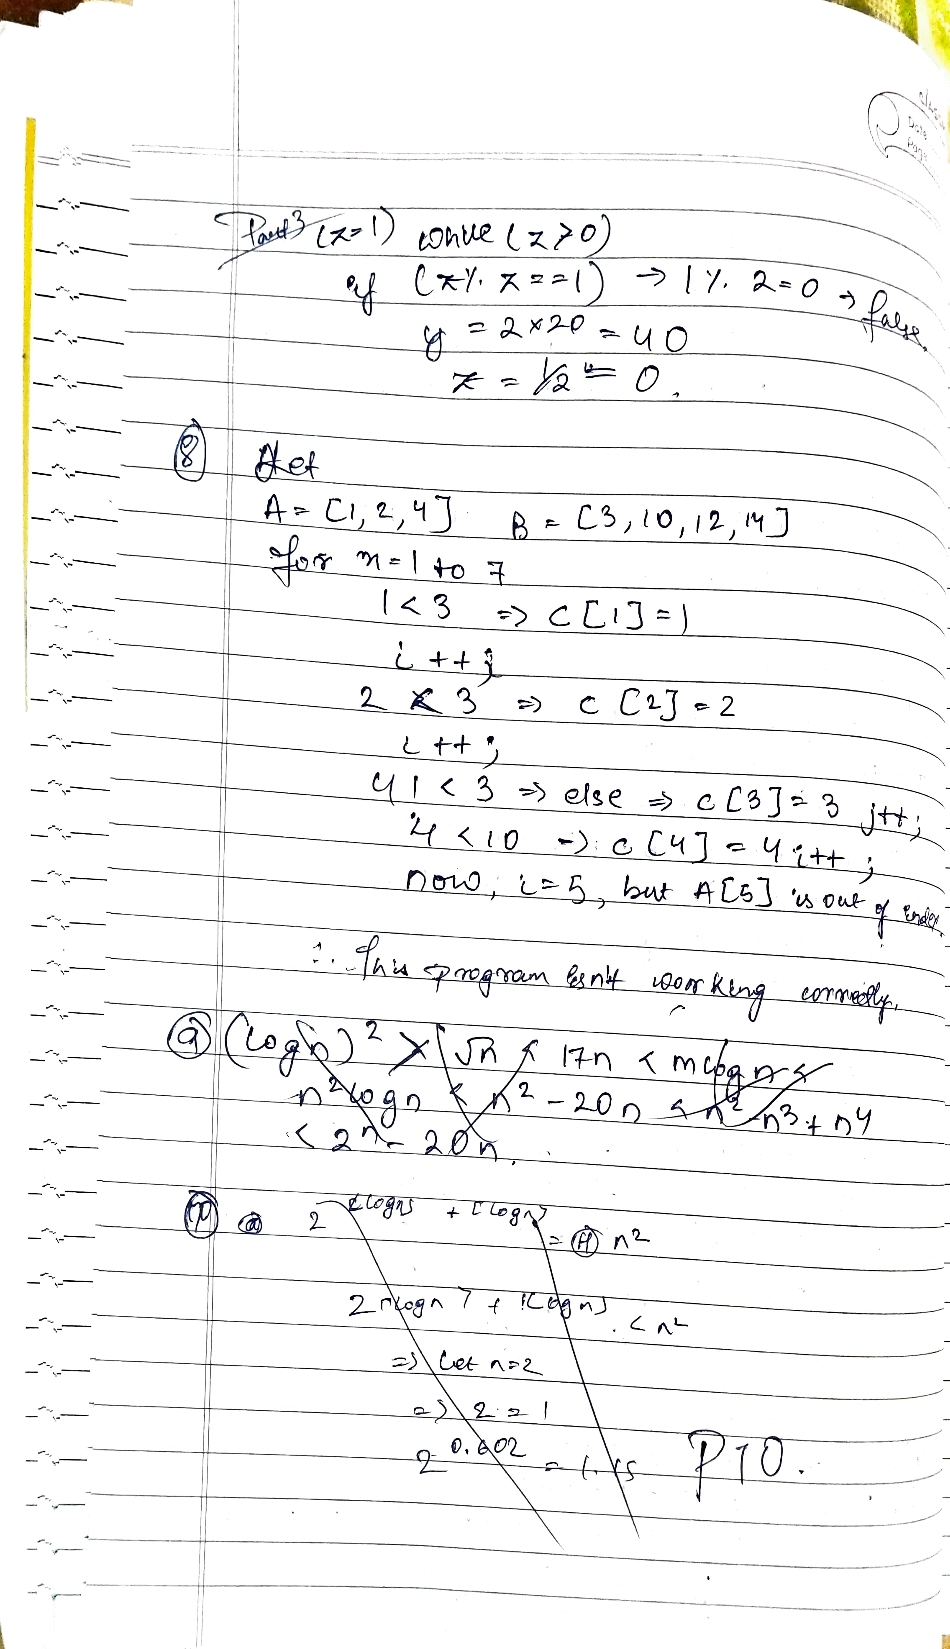 Date
Page
Part 3 (z=1) while (z>0)
if (z%. z==1) → 1 %. 2=0 → false.
y = 2×20 = 40
z = 1/2 = 0.
8 Let
A = [1, 2, 4] B = [3, 10, 12, 14]
for n=1 to 7
1<3 => C[1]=1
i++;
2 < 3 => C[2]=2
i++;
4 1 < 3 => else => C[3]=3 j++;
4 < 10 => C[4] = 4 i++;
now, i=5, but A[5] is out of index
∴ This program isn't working correctly.
9 (logn)² √n < 17n <
n²logn < n² - 20n < n² - n³ + n⁴
< 2ⁿ - 20n.
a 2 + = n²
2 + < n²
=> Let n=2
=> 2 = 1
2^0.602 = 1.
PTO.